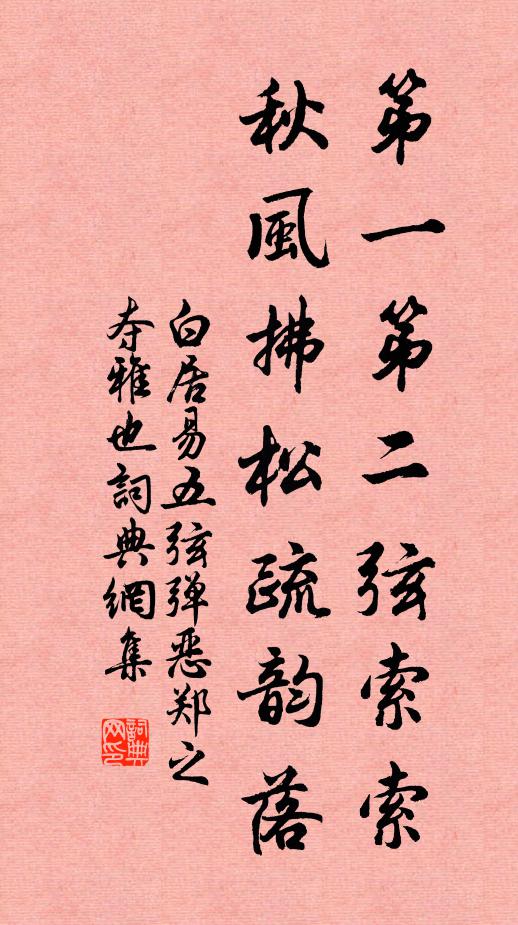 第一第二弦索索
秋風拂松疏韵落
白居易五弦弹恶郑之
夺雅也詞典網集
詞典網印